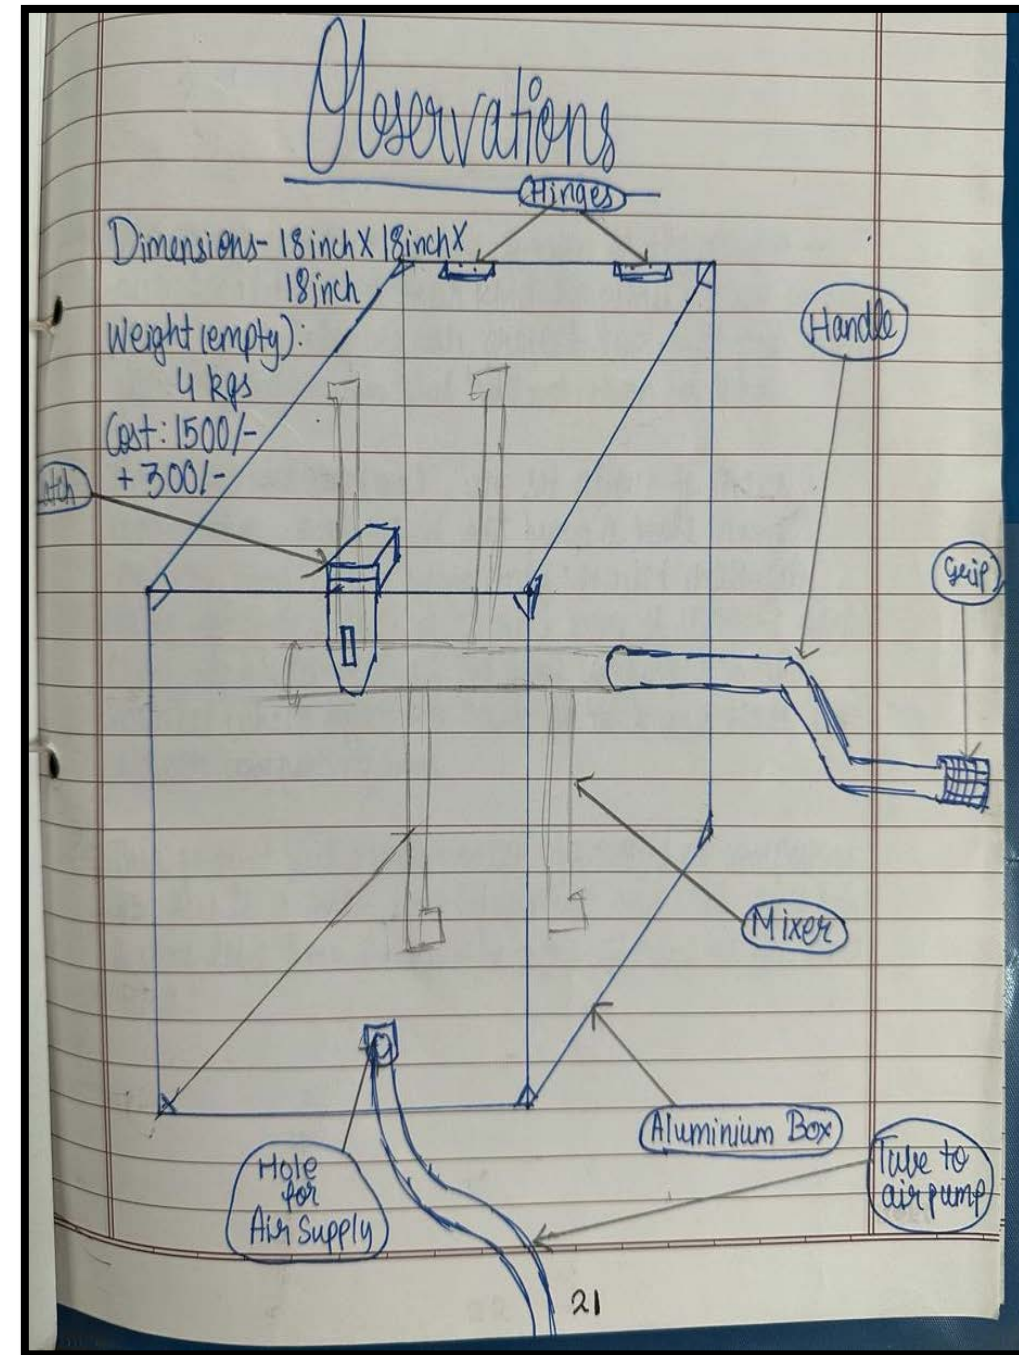 Observations
Hinges
Dimensions- 18inch X 18inch X
18inch
Weight (empty):
4 kgs
Cost: 1500/-
+ 300/-
Handle
Grip
Mixer
Aluminium Box
Hole
for
Air Supply
Tube to
air pump
21